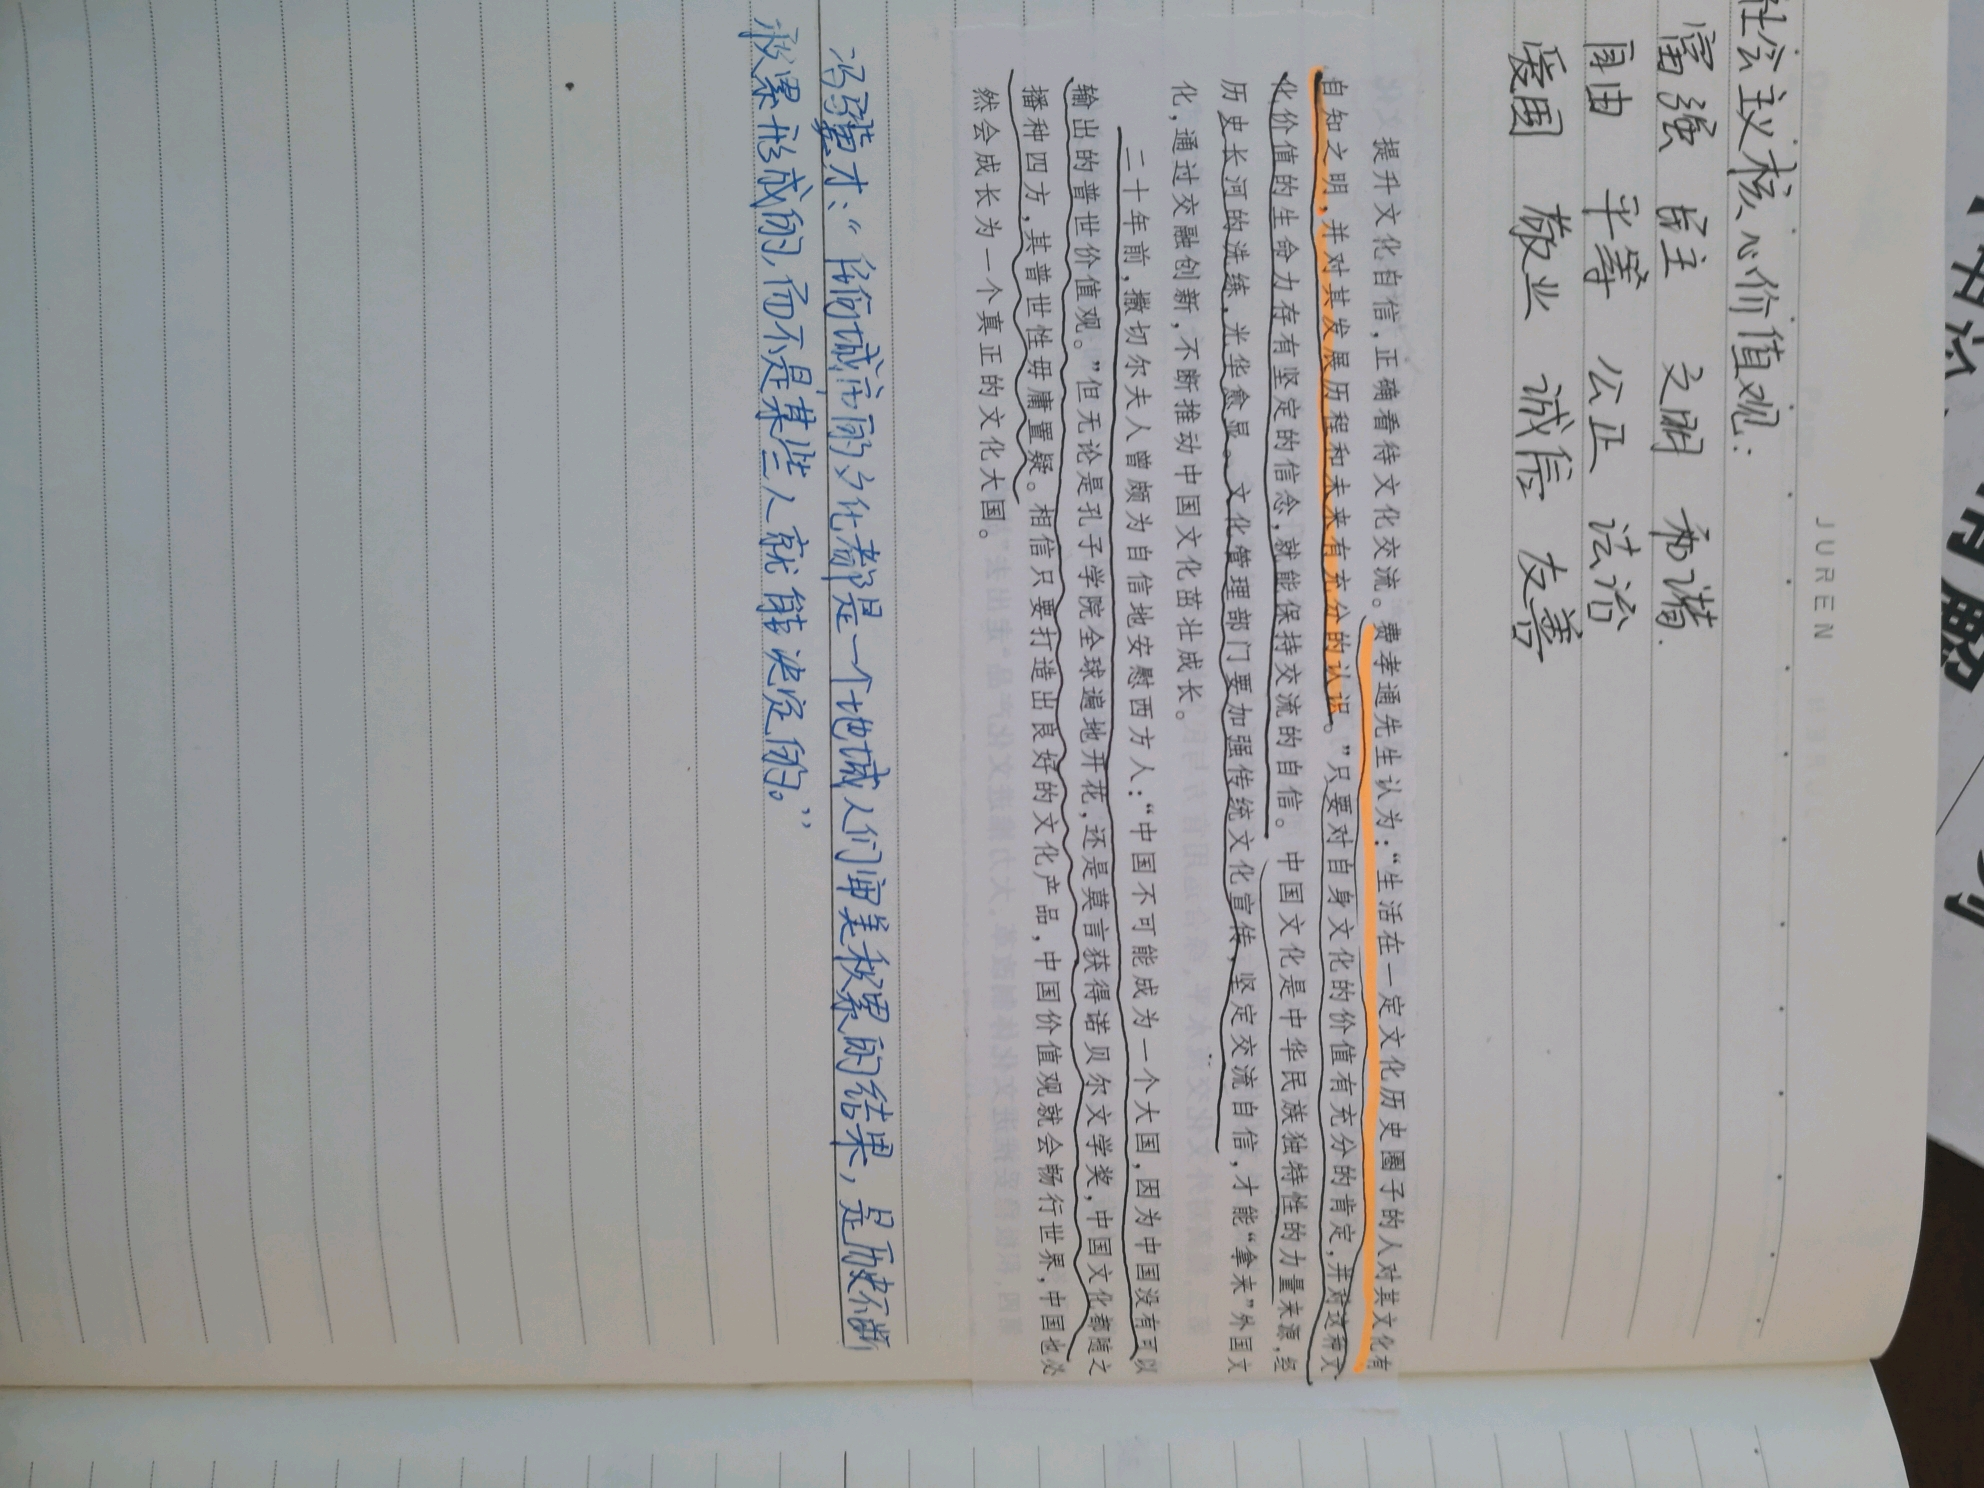 JUREN
社会主义核心价值观:
富强 民主 文明 和谐.
自由 平等 公正 法治
爱国 敬业 诚信 友善
提升文化自信,正确看待文化交流。费孝通先生认为:“生活在一定文化历史圈子的人对其文化有
自知之明,并对其发展历程和未来有充分的认识。”只要对自身文化的价值有充分的肯定,并对这种文
化价值的生命力存有坚定的信念,就能保持交流的自信。中国文化是中华民族独特性的力量来源,经
历史长河的洗练,光华愈显。文化管理部门要加强传统文化宣传,坚定交流自信,才能“拿来”外国文
化,通过交融创新,不断推动中国文化茁壮成长。
二十年前,撒切尔夫人曾颇为自信地安慰西方人:“中国不可能成为一个大国,因为中国没有可以
输出的普世价值观。”但无论是孔子学院全球遍地开花,还是莫言获得诺贝尔文学奖,中国文化都随之
播种四方,其普世性毋庸置疑。相信只要打造出良好的文化产品,中国价值观就会畅行世界,中国也必
然会成长为一个真正的文化大国。
冯骥才:“任何城市的文化都是一个地域人们审美积累的结果,是历史不断
积累形成的,而不是某些人就能决定的。”